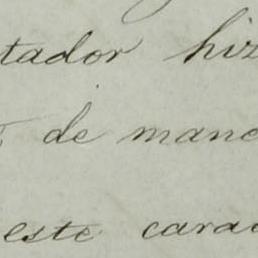 tador hiz
de mane
este carac